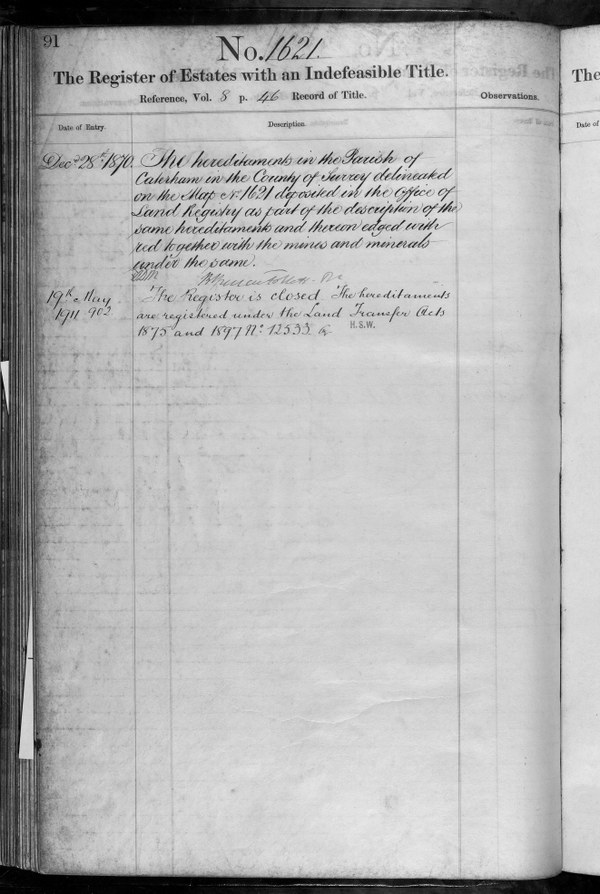 91
No. 1621.
The Register of Estates with an Indefeasible Title.
Reference, Vol. 8 p. 46 Record of Title.
Observations.
Date of Entry.
Description.
Decr 28th 1870. The hereditaments in the Parish of
Caterham in the County of Surrey delineated
on the Map No 1621 deposited in the Office of
Land Registry as part of the description of the
same hereditaments and thereon edged with
red together with the mines and minerals
under the same.
19th May The Register is closed The hereditaments
1911 902 are registered under the Land Transfer Acts
1875 and 1897 No. 12535
H.S.W.
The
Date of